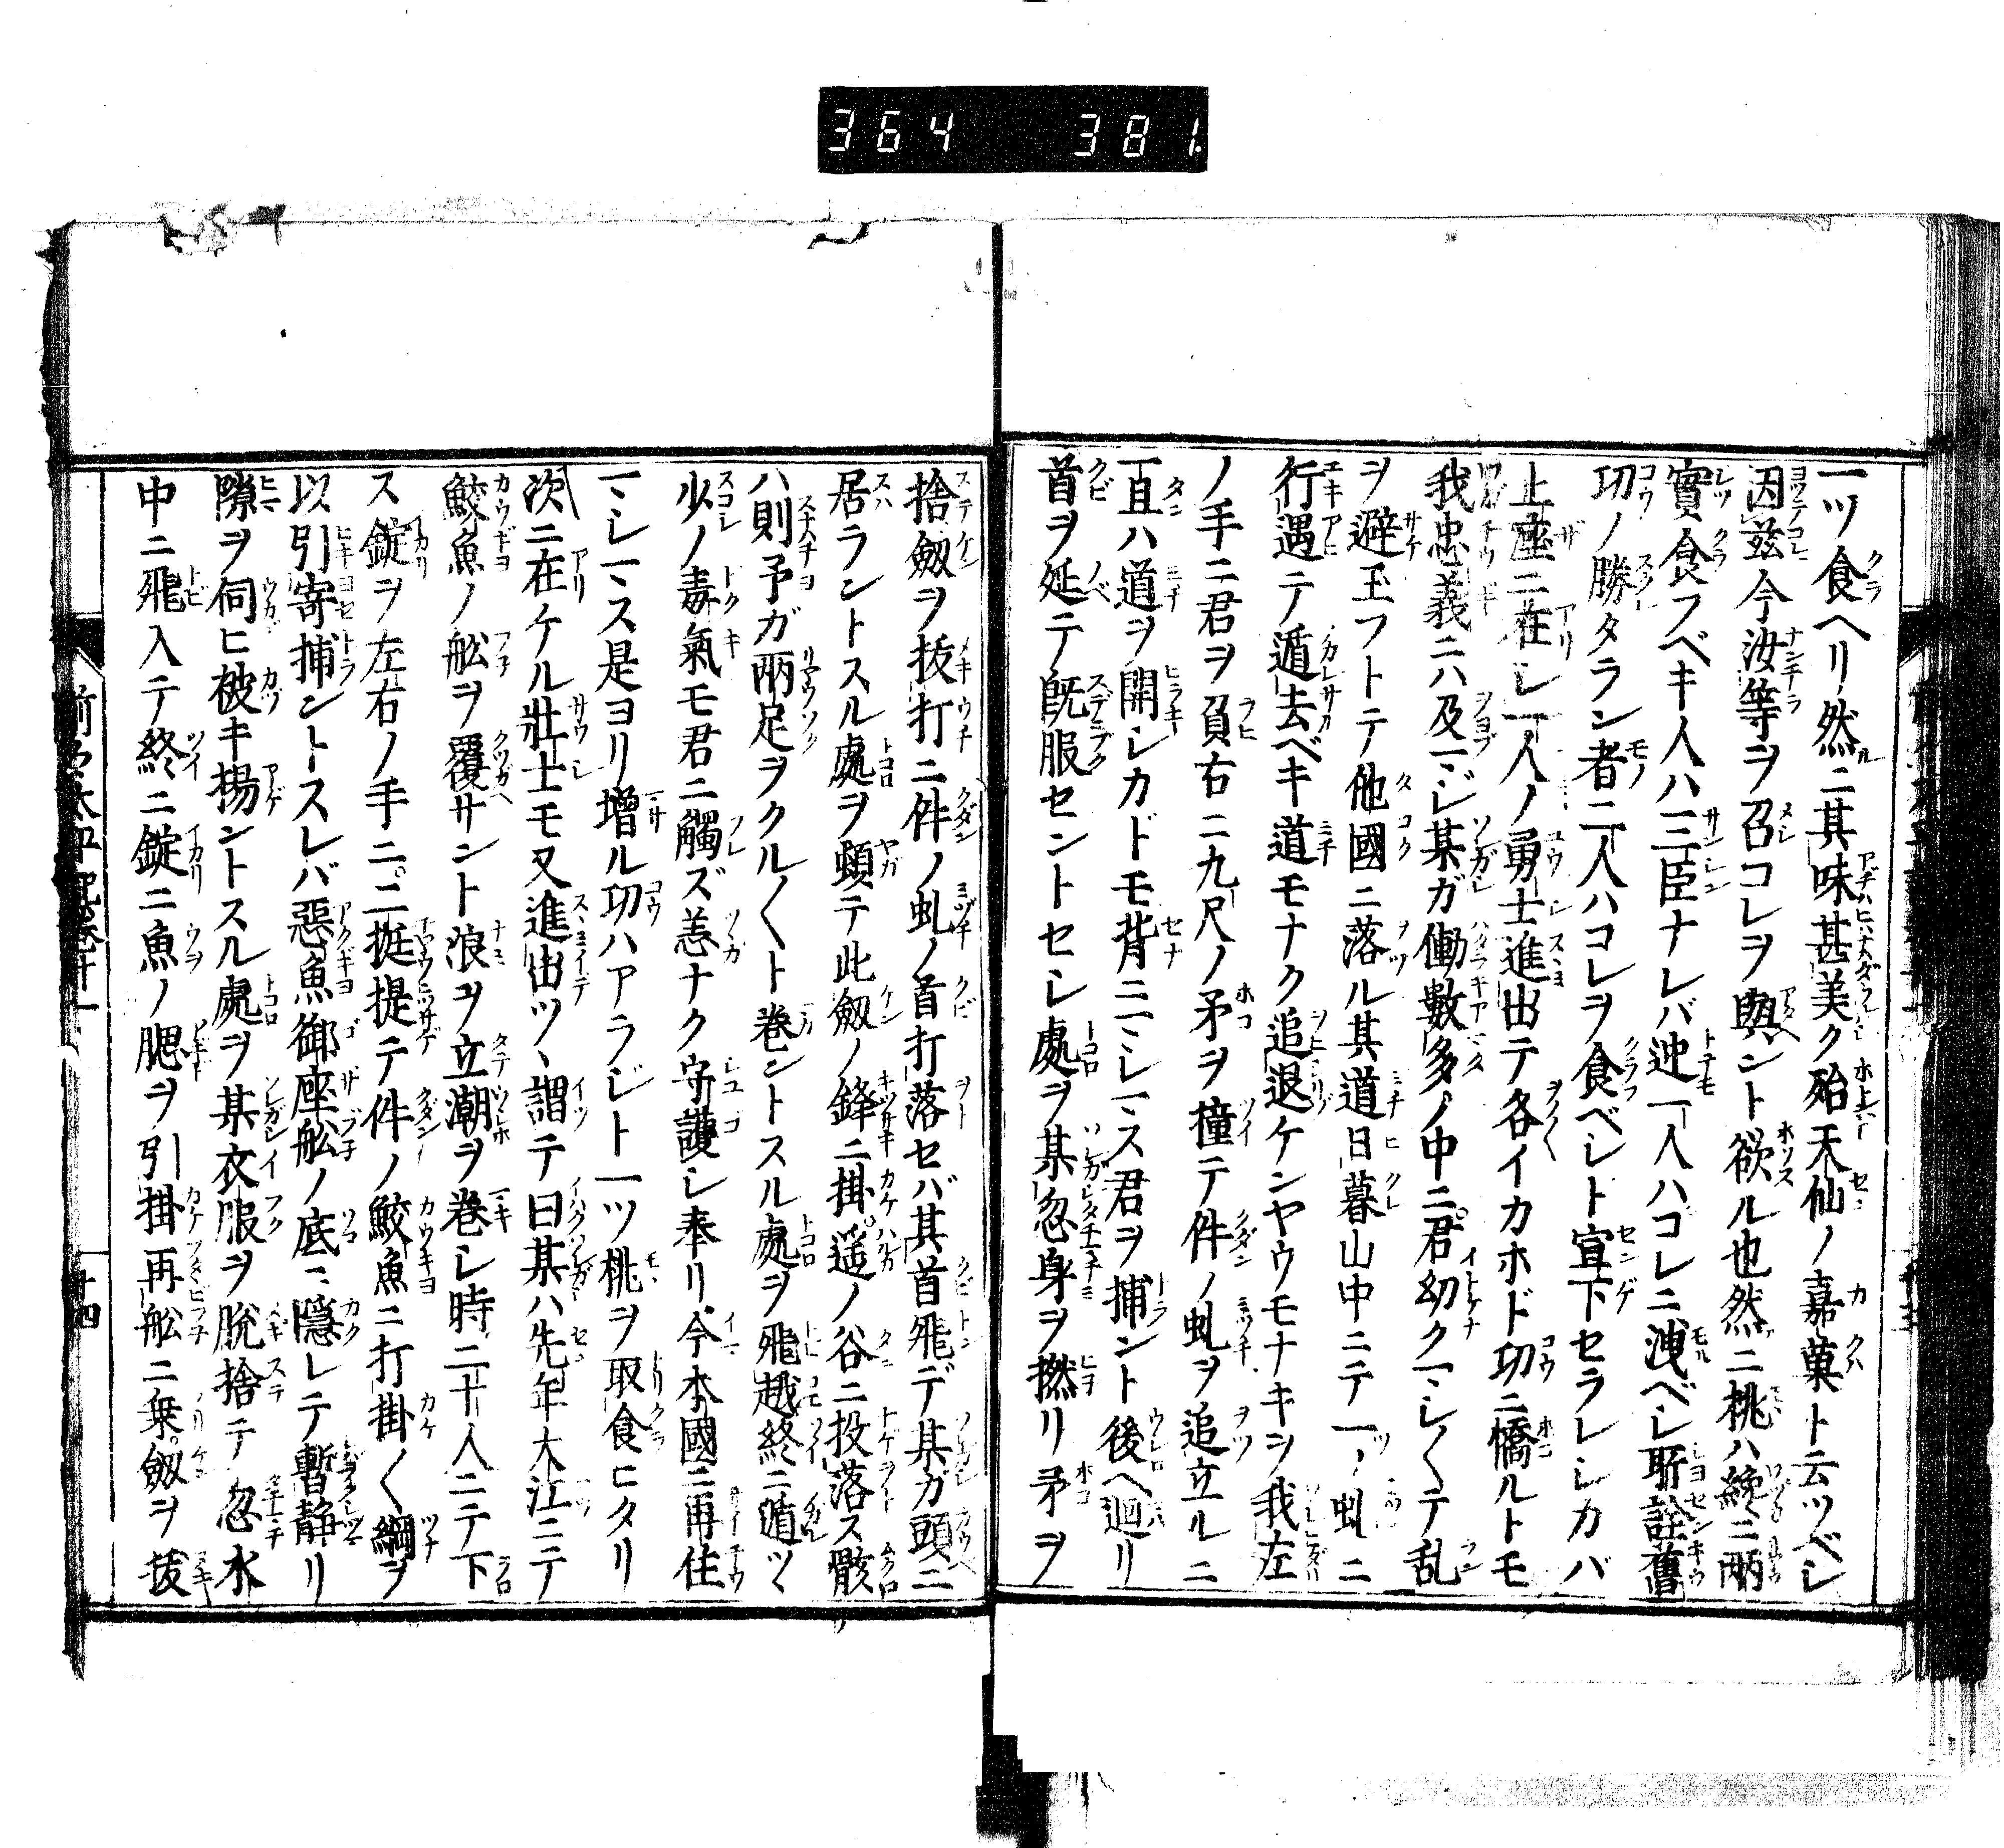 364 381.
一ツ食ヘリ然ニ其味甚美ク殆天仙ノ嘉菓ト云ツベシ
因茲今汝等ヲ召コレヲ與ント欲ル也然ニ桃ハ纔ニ兩
實食フベキ人ハ三臣ナレバ迚一人ハコレニ洩ベシ所詮舊
功ノ勝タラン者二人ハコレヲ食ベシト宣下セラレシカバ
上座ニ在シ一人ノ勇士進出テ各イカホド功ニ憍ルトモ
我忠義ニハ及ベシ某ガ働數多ノ中ニ君幼クマシ〱テ乱
ヲ避玉フトテ他國ニ落ル其道日暮山中ニテ一ノ虬ニ
行遇テ遁去ベキ道モナク追退ケンヤウモナキヲ我左
ノ手ニ君ヲ負右ニ九尺ノ矛ヲ撞テ件ノ虬ヲ追立ルニ
一旦ハ道ヲ開シカドモ背ニマシマス君ヲ捕ント後ヘ廻リ
首ヲ延テ既服セントセシ處ヲ某忽身ヲ撚リ矛ヲ
捨劔ヲ抜打ニ件ノ虬ノ首打落セバ其首飛デ某ガ頭ニ
居ラントスル處ヲ頓テ此劔ノ鋒ニ掛遥ノ谷ニ投落ス骸
ハ則予ガ兩足ヲクル〱ト巻ントスル處ヲ飛越終ニ遁ツヽ
少ノ毒氣モ君ニ觸ズ恙ナク守護シ奉リ今本國ニ再住
マシマス是ヨリ増ル功ハアラジト一ツ桃ヲ取食ヒタリ
次ニ在ケル壯士モ又進出ツヽ謂テ曰某ハ先年大江ニテ
鮫魚ノ舩ヲ覆サント浪ヲ立潮ヲ巻シ時二十人ニテ下
ス錠ヲ左右ノ手ニ二挺提テ件ノ鮫魚ニ打掛〱綱ヲ
以引寄捕ントスレバ惡魚御座舩ノ底ニ隠レテ暫静リ
隙ヲ伺ヒ被キ揚ントスル處ヲ某衣服ヲ脱捨テ忽水
中ニ飛入テ終ニ錠ニ魚ノ腮ヲ引掛再舩ニ乗劔ヲ抜
前々太平記巻十一
十四